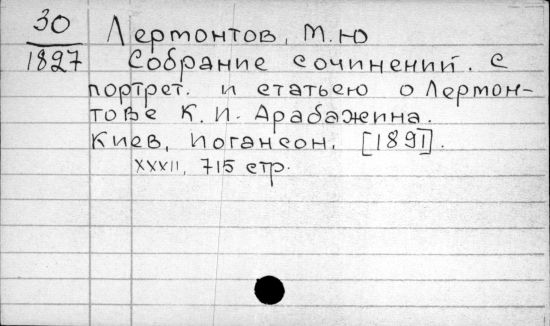 30 Лермонтов, М.Ю
1827 Собрание сочинений. С
портрет. и статьею о Лермон-
тове К. И. Арабажина.
Киев, Иогансон, [1891].
XXXII, 715 стр.